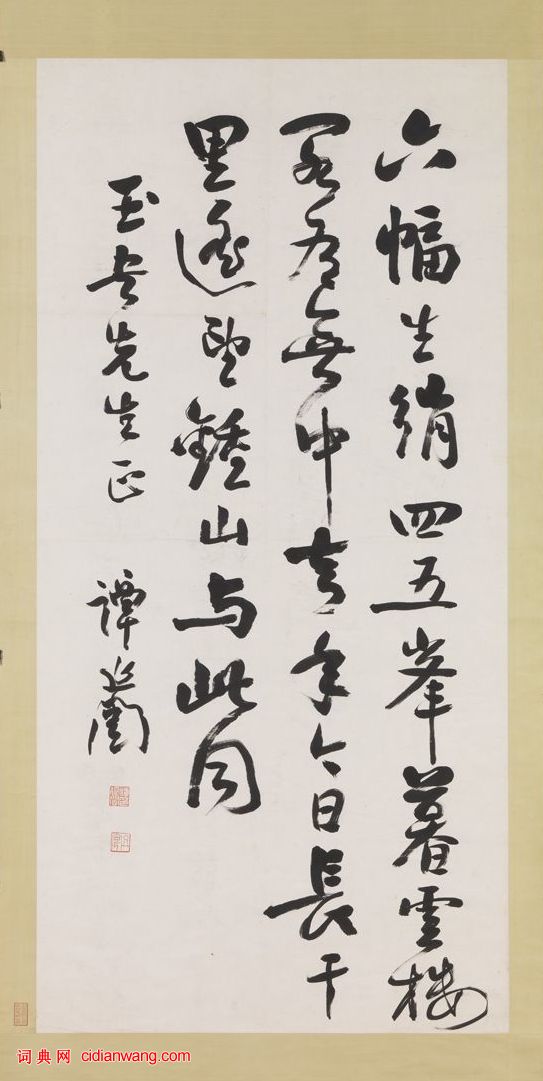 六幅生綃四五峯暮雲樓
閣有無中去年今日長干
里遙望鍾山与此同
玉 先生正 譚延闓
词典网 cidianwang.com